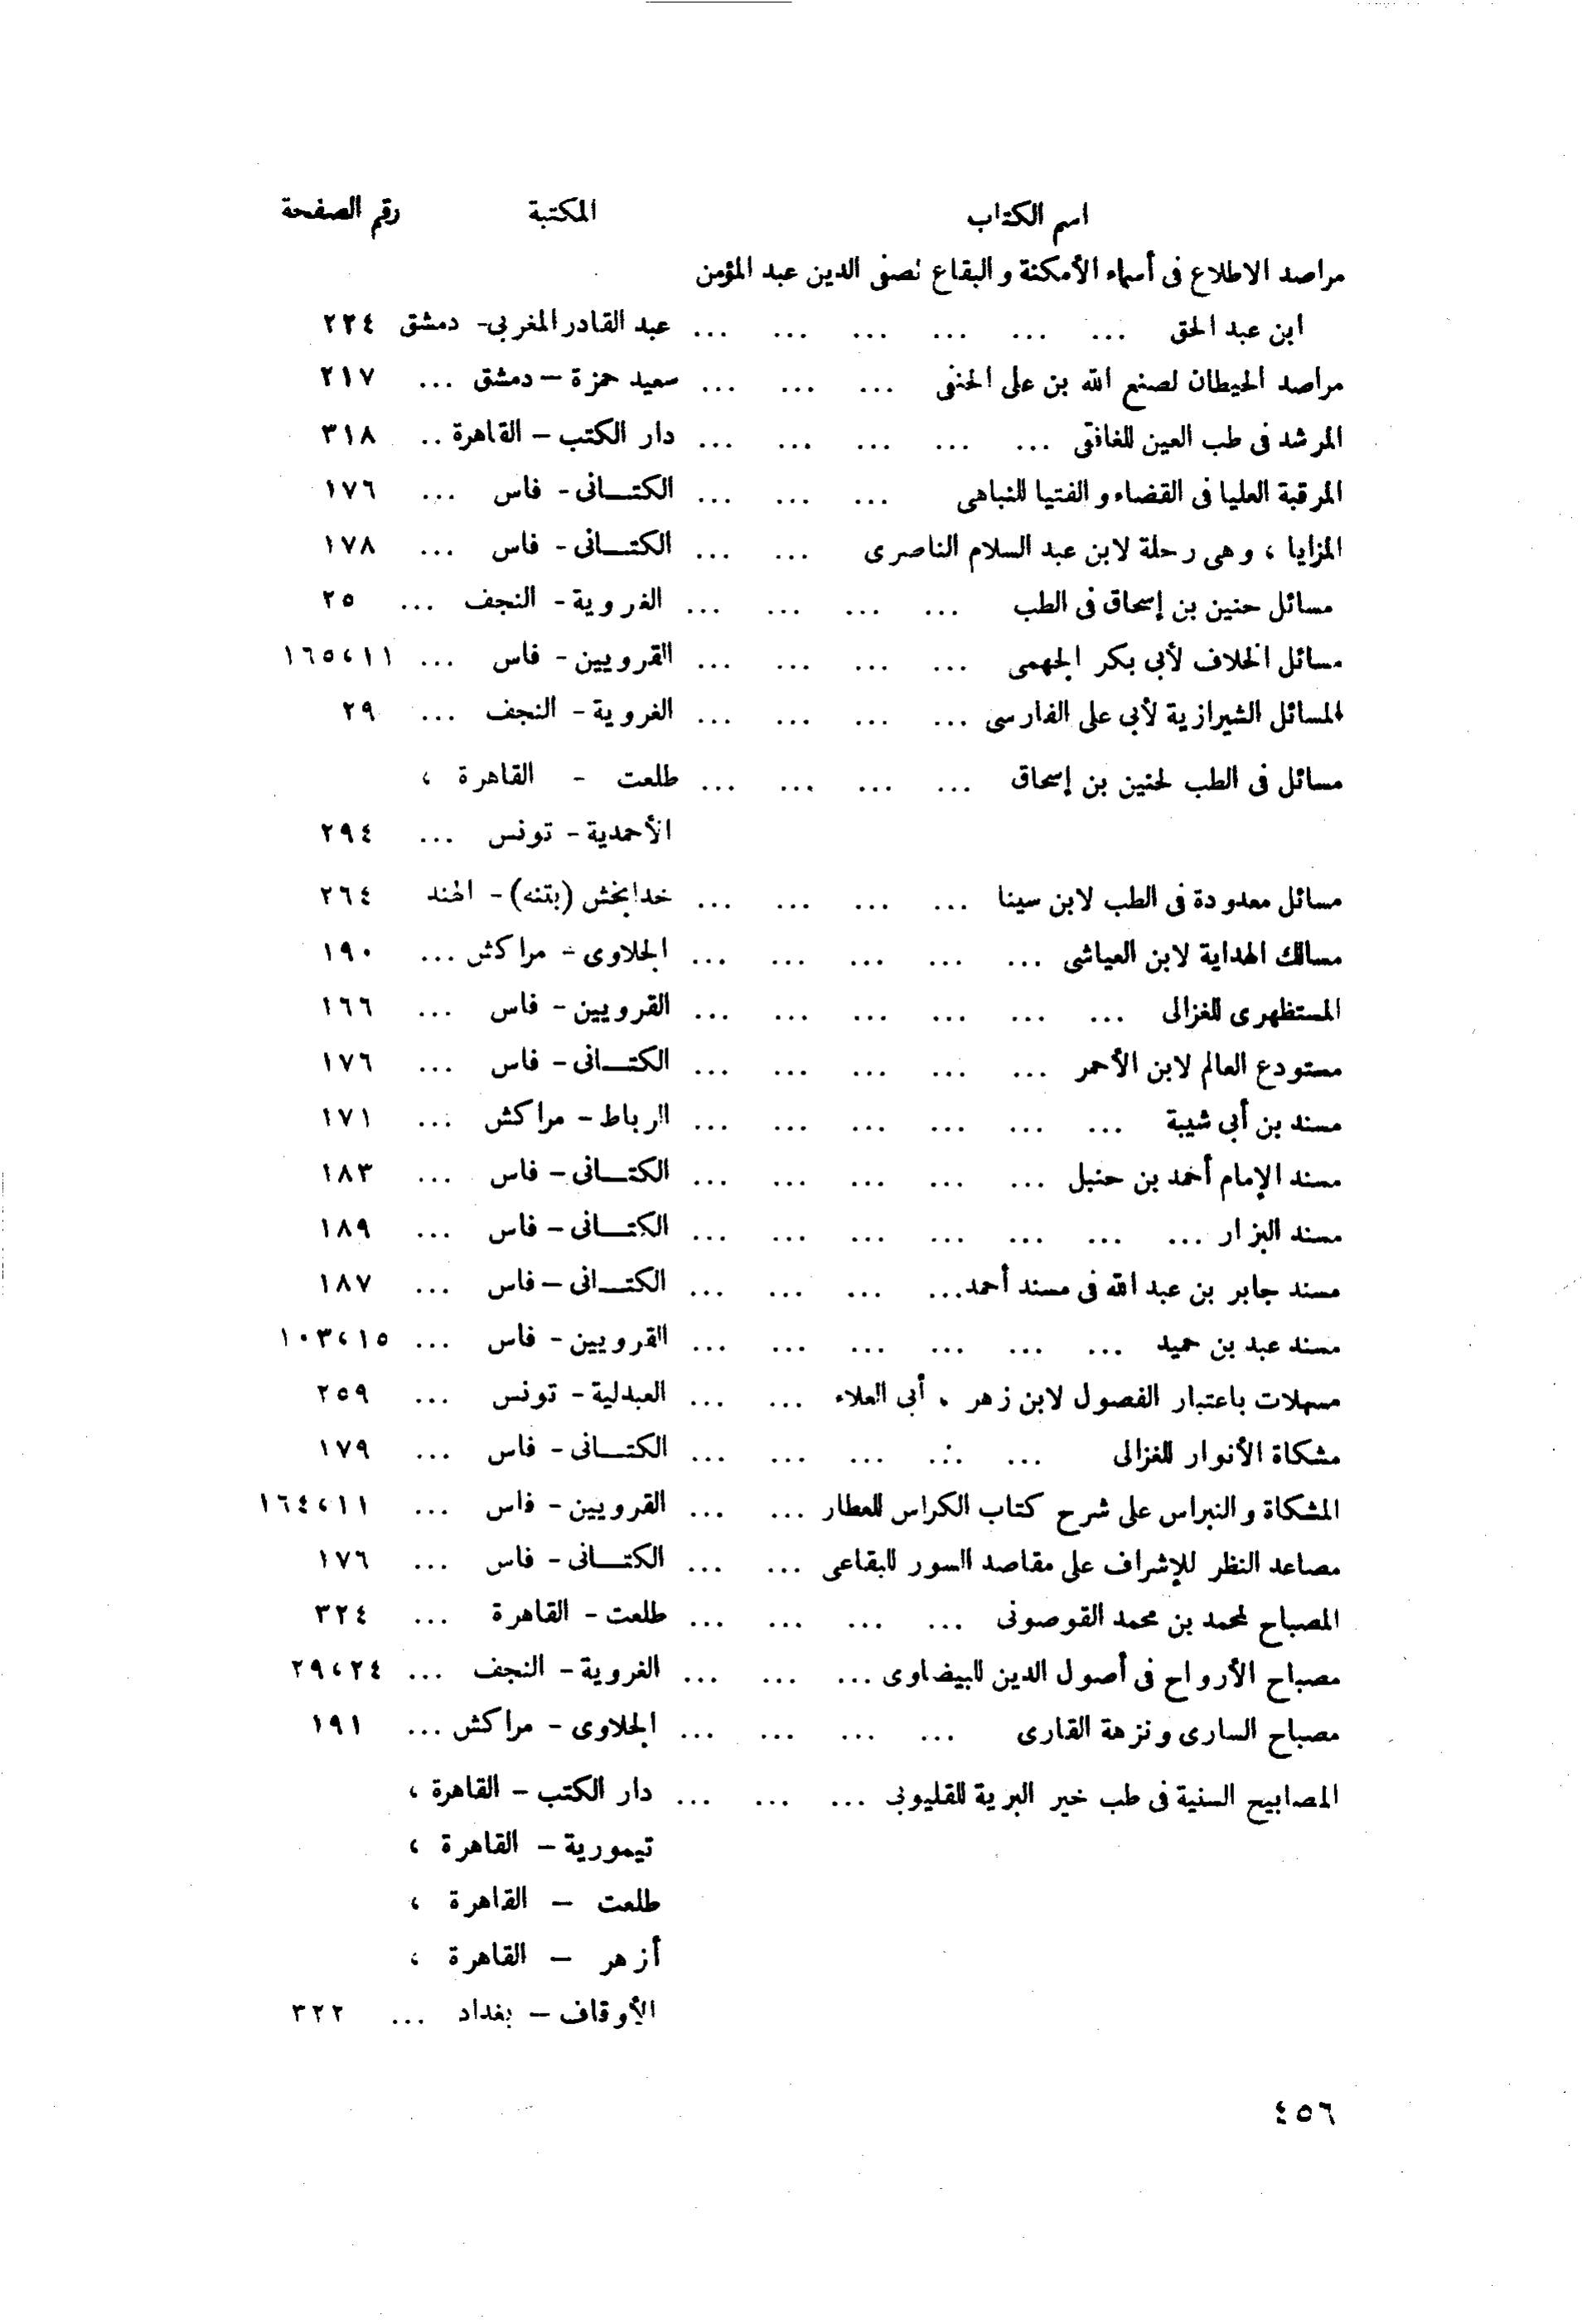 اسم الكتاب المكتبة رقم الصفحة
مراصد الاطلاع فى أسماء الأمكنة والبقاع لصفى الدين عبد المؤمن
ابن عبد الحق ... ... ... ... ... ... عبد القادر المغربي - دمشق ٢٢٤
مراصد الحيطان لصنع الله بن على الحنفى ... ... ... سعيد حمزة – دمشق ... ٢١٧
المرشد فى طب العين للغافقى ... ... ... ... ... دار الكتب – القاهرة .. ٣١٨
المرقبة العليا فى القضاء والفتيا للنباهى ... ... ... الكتانى - فاس ... ١٧٦
المزايا ، وهى رحلة لابن عبد السلام الناصرى ... ... الكتانى - فاس ... ١٧٨
مسائل حنين بن إسحاق فى الطب ... ... ... ... الغروية - النجف ... ٢٥
مسائل الخلاف لأبى بكر الجهمى ... ... ... ... القرويين - فاس ... ١١ ، ١٦٥
المسائل الشيرازية لأبى على الفارسى ... ... ... ... الغروية - النجف ... ٢٩
مسائل فى الطب لحنين بن إسحاق ... ... ... ... طلعت - القاهرة ،
الأحمدية - تونس ... ٢٩٤
مسائل معدودة فى الطب لابن سينا ... ... ... ... خدابخش (بتنه) - الهند ٢٦٤
مسالك الهداية لابن العياشى ... ... ... ... ... الجلاوى - مراكش ... ١٩٠
المستظهرى للغزالى ... ... ... ... ... ... القرويين - فاس ... ١٦٦
مستودع العالم لابن الأحمر ... ... ... ... ... الكتانى - فاس ... ١٧٦
مسند بن أبى شيبة ... ... ... ... ... ... الرباط - مراكش ... ١٧١
مسند الإمام أحمد بن حنبل ... ... ... ... ... الكتانى – فاس ... ١٨٣
مسند البزار ... ... ... ... ... ... ... الكتانى – فاس ... ١٨٩
مسند جابر بن عبد الله فى مسند أحمد ... ... ... ... الكتانى – فاس ... ١٨٧
مسند عبد بن حميد ... ... ... ... ... ... القرويين - فاس ... ١٥ ، ١٠٣
مسهلات باعتبار الفصول لابن زهر ، أبى العلاء ... ... العبدلية - تونس ... ٢٥٩
مشكاة الأنوار للغزالى ... ... ... ... ... الكتانى - فاس ... ١٧٩
المشكاة والنبراس على شرح كتاب الكراس للعطار ... ... القرويين - فاس ... ١١ ، ١٦٤
مصاعد النظر للإشراف على مقاصد السور للبقاعى ... ... الكتانى - فاس ... ١٧٦
المصباح لمحمد بن محمد القوصونى ... ... ... ... طلعت - القاهرة ... ٣٢٤
مصباح الأرواح فى أصول الدين للبيضاوى ... ... ... الغروية - النجف ... ٢٤ ، ٢٩
مصباح السارى ونزهة القارى ... ... ... ... الجلاوى - مراكش ... ١٩١
المصابيح السنية فى طب خير البرية للقليوبى ... ... ... دار الكتب – القاهرة ،
تيمورية – القاهرة ،
طلعت – القاهرة ،
أزهر – القاهرة ،
الأوقاف – بغداد ... ٣٢٢
٤٥٦